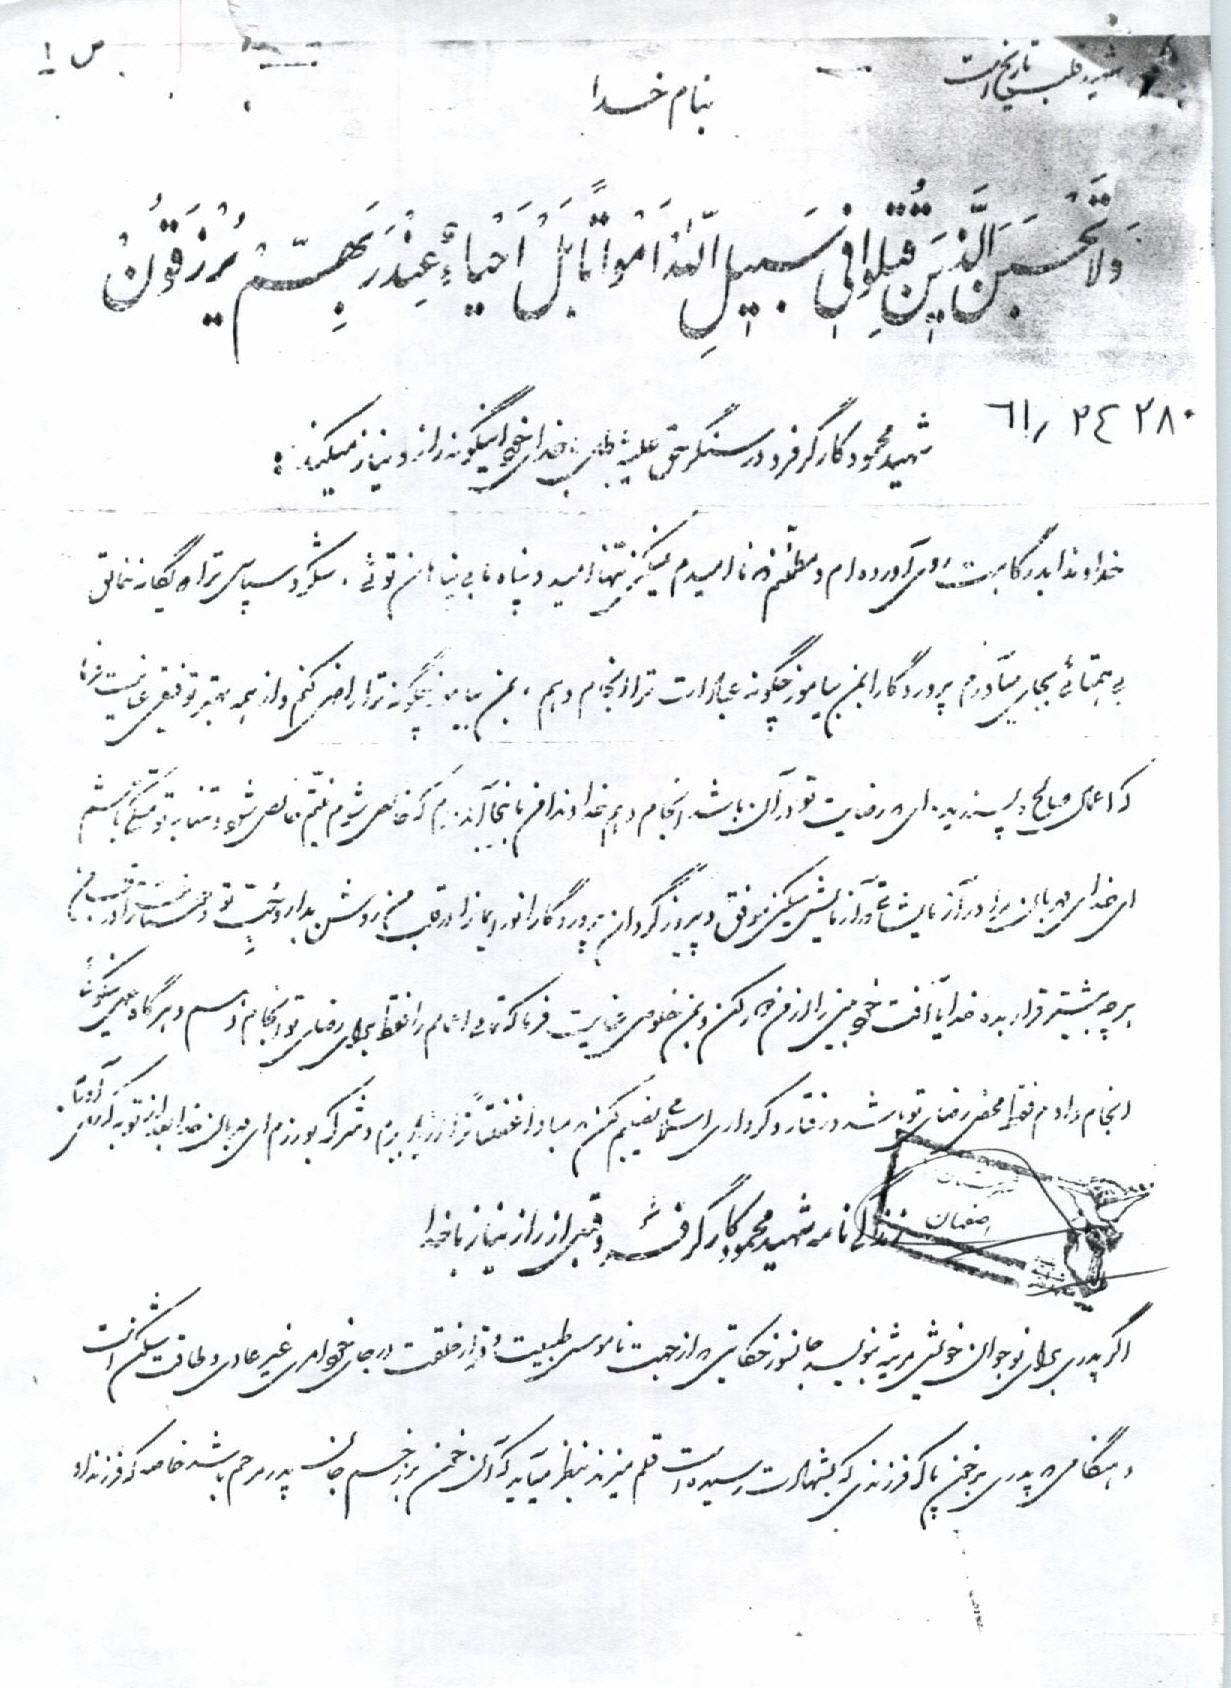 ص ۱
شهید قلب تاریخ است
بنام خدا
وَلا تَحْسَبَنَّ الَّذینَ قُتِلُوا فی سَبیلِ اللهِ اَمْواتاً بَلْ اَحْیاءٌ عِنْدَ رَبِهِّمْ یُرْزَقُونْ
۶۱٫ ۲۴۲۸۰
شهید محمود کارگرفرد در سنگر حق علیه باطل با خدای خود اینگونه راز و نیاز میکند:
خداوندا بدرگاهت روی آورده‌ام و مطمئنم که ناامیدم نمیکنی تنها امید و پناه ما بی پناهان توئی . شکر و سپاس ترا که یگانه خالق
بی همتائی بجای میآورم پروردگارا بمن بیاموز چگونه عبادات ترا انجام دهم ، بمن بیاموز چگونه ترا راضی کنم و از همه بهتر توفیقی عنایت فرما
که اعمال صالح و پسندیده ای که رضایت تو در آن باشد انجام دهم خداوندا من باینجا آمده‌ام که خالص شوم نیتم خالص شود و تنها به تو متکی باشم
ای خدای مهربان مرا در آزمایشاتی که آزمایش میکنی موفق و پیروز گردان پروردگارا نور ایمان را در قلب من روشن بدار و محبت تو و در قلب من
هر چه بیشتر قرار بده خدایا آفت خودبینی را از من دور کن و بمن خلوص عنایت فرما که تمام اعمالم را فقط برای رضای تو انجام دهم و هرگاه عمل نیکوئی
انجام دادم فقط محض رضای تو باشد و رفتار و کرداری اسلامی نصیبم کن که مبادا غفلتاً و شرک بورزم ای مهربان خدا بعد از توبه
زندگی نامه شهید محمود کارگرفرد و قبل از راز و نیاز با خدا
اصفهان
اگر پدری برای نوجوان خویش مرثیه بنویسد جانسوز حکایتی که از جهت ناموس طبیعت و راز خلقت در جای خود امری غیر عادی و طاقت شکن است
و هنگامی که پدری بر خون پاک فرزندی که بشهادت رسیده است قلم میزند بنظر میآید که آن خون بر زخم جان پدر مرحم باشد خاصه که فرزند او